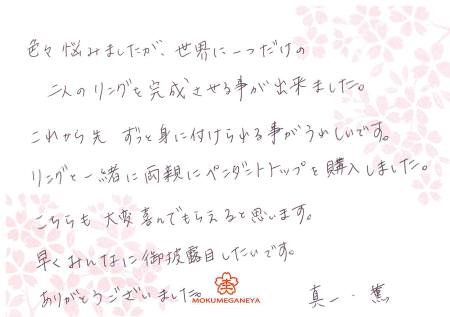 色々悩みましたが、世界に一つだけの
二人のリングを完成させる事が出来ました。
これから先 ずっと身に付けられる事がうれしいです。
リングと一緒に両親にペンダントトップを購入しました。
こちらも大変喜んでもらえると思います。
早くみんなに御披露目したいです。
ありがとうございました。
MOKUMEGANEYA
真一・薫